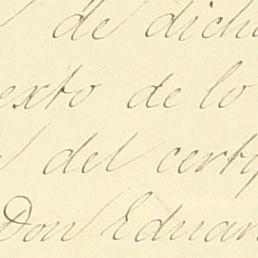 de dich
exto de lo
del certi
Don Eduar